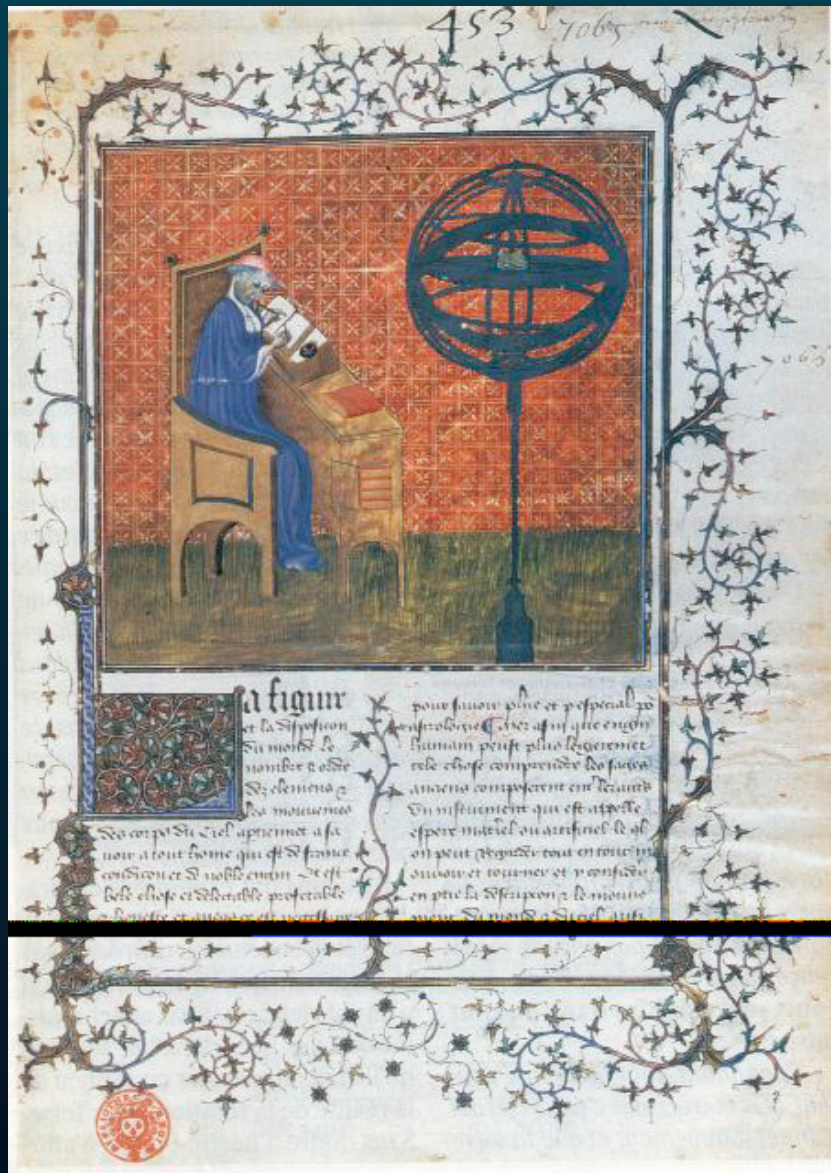 453 7065
a figure
et la disposicion
du monde le
nombre & ordre
des elemens &
les mouvemens
des corps du Ciel aptiennent a sa
voir a tout home qui est de franche
condicion et de noble engin Et est
bele chose et delectable profitable
& honeste et ce est necessaire
pour savoir phie et p especial po
astrologie afin que engin
humain peust plus legierement
tele chose comprendre les sages
anciens composerent
Un instrument qui est appelle
espere materiel ou artificiel le
on peut Regarder tout en tour m
ouvoir et tourner et y considerer
en ptie la descripcion & le mouve
ment du monde & du ciel
7065